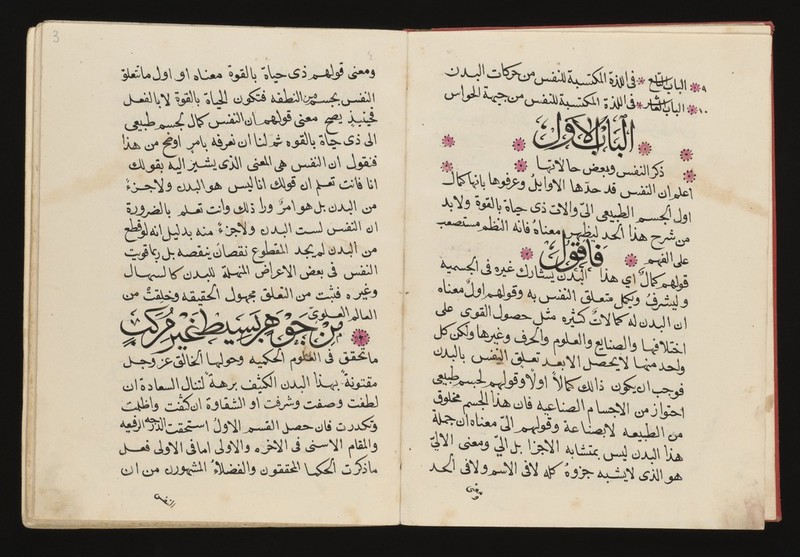 ٩ الباب التاسع في اللذة المكتسبة للنفس من حركات البدن
١٠ الباب العاشر في اللذة المكتسبة للنفس من جهة الحواس
الباب الاول
ذكر النفس وبعض حالاتها
اعلم ان النفس قد حدها الاوايل وعرفوها بانها كمال
اول لجسم الطبيعي الي والات ذي حياة بالقوة ولابد
من شرح هذا الحد ليظهر معناه فانه النظم مستصعب
على الفهم فاقول
قولهم كمال اي هذا البدن يشارك غيره في الجسميه
وليشرف وتكمل متعلق النفس به وقولهم اول معناه
ان البدن له كمالات كثيره مثل حصول القوى على
اختلافها والصنايع والعلوم والحرف وغيرها ولكن كل
واحد منها لا يحصل الا بعد تعلق النفس بالبدن
فوجب ان يكون ذالك كمالا اولا وقولهم لجسم طبيعي
احتراز من الاجسام الصناعيه فان هذا الجسم مخلوق
من الطبيعه لا بصناعة وقولهم الي معناه ان جملة
هذا البدن ليس بمتشابه الاجزا بل الي ومعنى الالي
هو الذي لا يشبه جزوه كله لا في الاسم ولا في الحد
ومعنى
3
ومعنى قولهم ذي حياة بالقوة معناه او اول ما تتعلق
النفس بجسم من النطفه فتكون الحياة بالقوة لا بالفعل
فحينيذ يصح معنى قولهم ان النفس كمال لجسم طبيعي
الي ذي حياة بالقوه ثم لنا ان نعرفه بامر اوضح من هذا
فنقول ان النفس هي المعنى الذي يشير اليه بقولك
انا فانت تعلم ان قولك انا ليس هو البدن ولا جزء
من البدن بل هو امر ورا ذلك وانت تعلم بالضرورة
ان النفس لست البدن ولا جزء منه بدليل انه لو قطع
من البدن لم يجد المقطوع نقصان بنقصه بل ربما قويت
النفس في بعض الاعراض المنهكة للبدن كالسهال
وغيره فثبت من التعلق مجهول الحقيقه وخلقت من
العالم العلوي من جوهر بسيط غير مركب
ما تحقق في العلوم الحكميه وحولها الخالق عز وجل
مقتونة بهذا البدن الكثف برهة لتنال السعادة ان
لطفت وصفت وشرفت او الشقاوة ان كثفت واظلمت
وتكدرت فان حصل القسم الاول استحقت الدرجه الرفيعه
والمقام الاسنى في الاخره والاولى اما في الاولى فعل
ما ذكرت الحكما المحققون والفضلاء المشهورن من ان
النفس